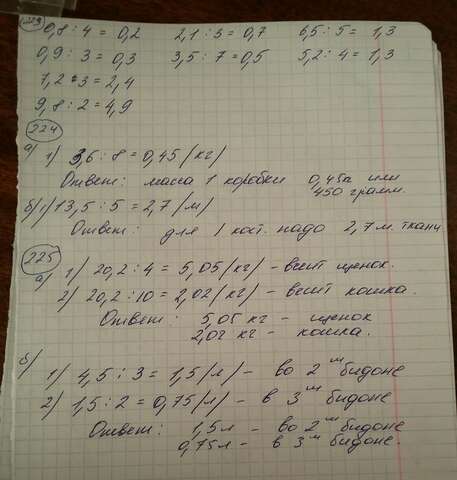 223
0,8 : 4 = 0,2 2,1 : 3 = 0,7 6,5 : 5 = 1,3
0,9 : 3 = 0,3 3,5 : 7 = 0,5 5,2 : 4 = 1,3
7,2 : 3 = 2,4
9,8 : 2 = 4,9
224
а) 1) 3,6 : 8 = 0,45 (кг)
Ответ: масса 1 коробки 0,45к или
450 грамм.
б) 1) 13,5 : 5 = 2,7 (м)
Ответ: для 1 кост. надо 2,7 м. ткани
225
а) 1) 20,2 : 4 = 5,05 (кг) - весит щенок.
2) 20,2 : 10 = 2,02 (кг) - весит кошка.
Ответ: 5,05 кг - щенок
2,02 кг - кошка.
б)
1) 4,5 : 3 = 1,5 (л) - во 2ом бидоне
2) 1,5 : 2 = 0,75 (л) - в 3ем бидоне
Ответ: 1,5 л - во 2ом бидоне
0,75 л - в 3ем бидоне.